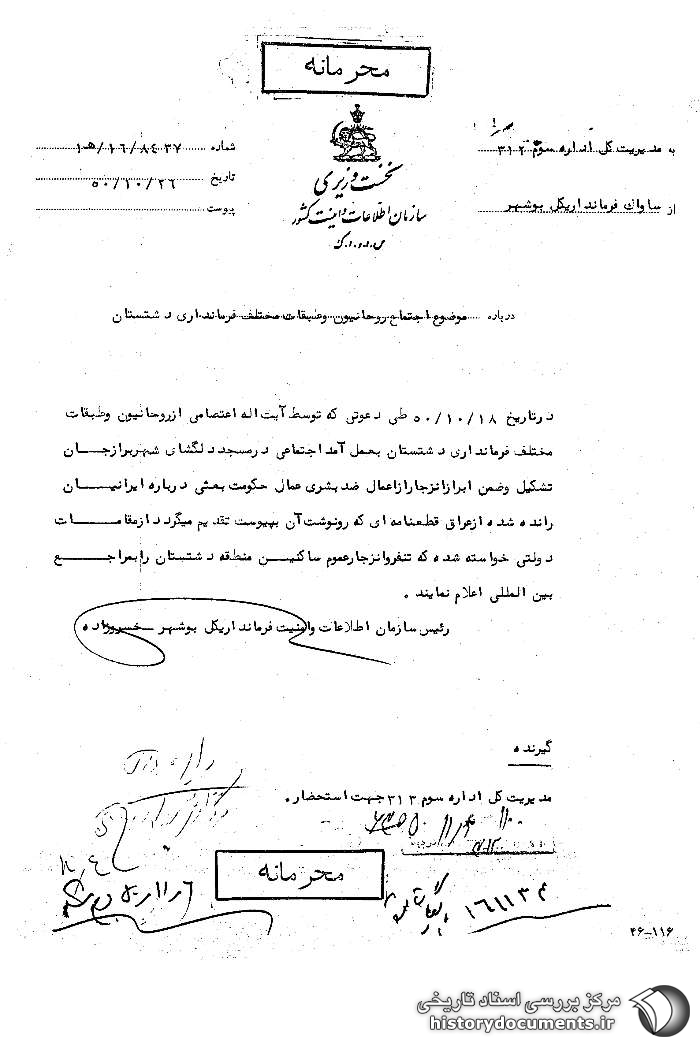 محرمانه
به مدیریت کل اداره سوم ۳۱۲
از ساواك فرمانداریکل بوشهر
نخست وزیری
سازمان اطلاعات و امنیت کشور
س.ا.و.ا.ک
شماره ۱۶/۸۴۳۷/هـ۱
تاریخ ۵۰/۱۰/۲۶
پیوست
درباره موضوع اجتماع روحانیون وطبقات مختلف فرمانداری دشتستان
درتاریخ ۵۰/۱۰/۱۸ طی دعوتی که توسط آیت اله اعتصامی ازروحانیون وطبقات
مختلف فرمانداری دشتستان بعمل آمد اجتماعی درمسجد دلگشای شهربرازجان
تشکیل وضمن ابرازانزجارازاعمال ضد بشری عمال حکومت بعثی درباره ایرانیان
رانده شده ازعراق قطعنامه ای که رونوشت آن بپیوست تقدیم میگردد ازمقامات
دولتی خواسته شده که تنفروانزجارعموم ساکنین منطقه دشتستان رابمراجع
بین المللی اعلام نمایند .
رئیس سازمان اطلاعات وامنیت فرمانداریکل بوشهر خسروزاده
گیرنده
مدیریت کل اداره سوم ۳۱۲ جهت استحضار .
محرمانه
۱۶۱۱۳۴
۲۶-۱۱۶
مرکز بررسی اسناد تاریخی
historydocuments.ir